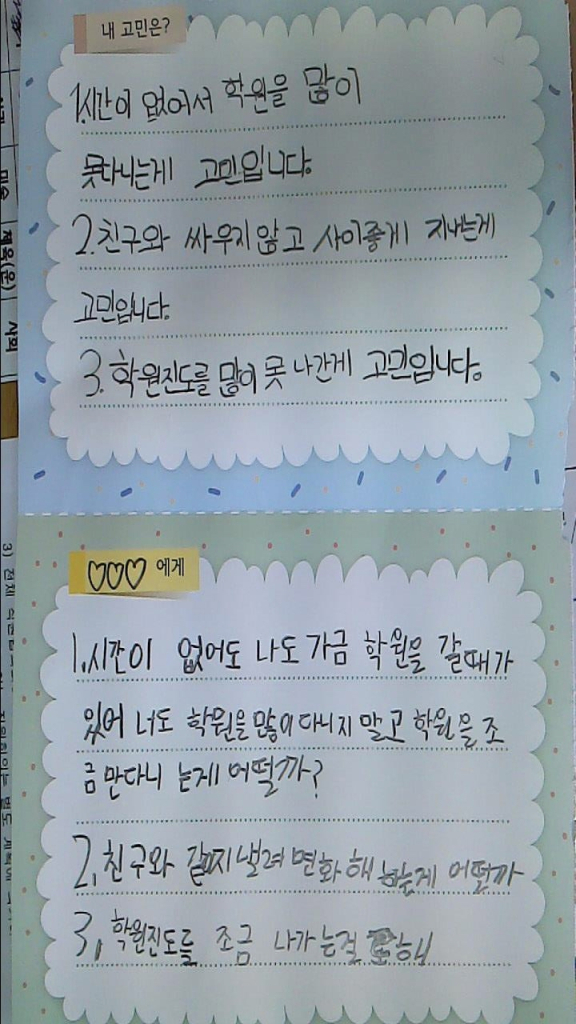 내 고민은?
1.시간이 없어서 학원을 많이
못다니는게 고민입니다.
2.친구와 싸우지 않고 사이좋게 지내는게
고민입니다.
3.학원진도를 많이 못 나간게 고민입니다.
♡♡♡ 에게
1.시간이 없어도 나도 가금 학원을 갈때가
있어 너도 학원을 많이 다니지 말고 학원을 조
금만다니 는게 어떨까?
2.친구와 지낼려면 화해 하는게 어떨까
3.학원진도를 조금 나가는걸
미술
체육(운)
사회